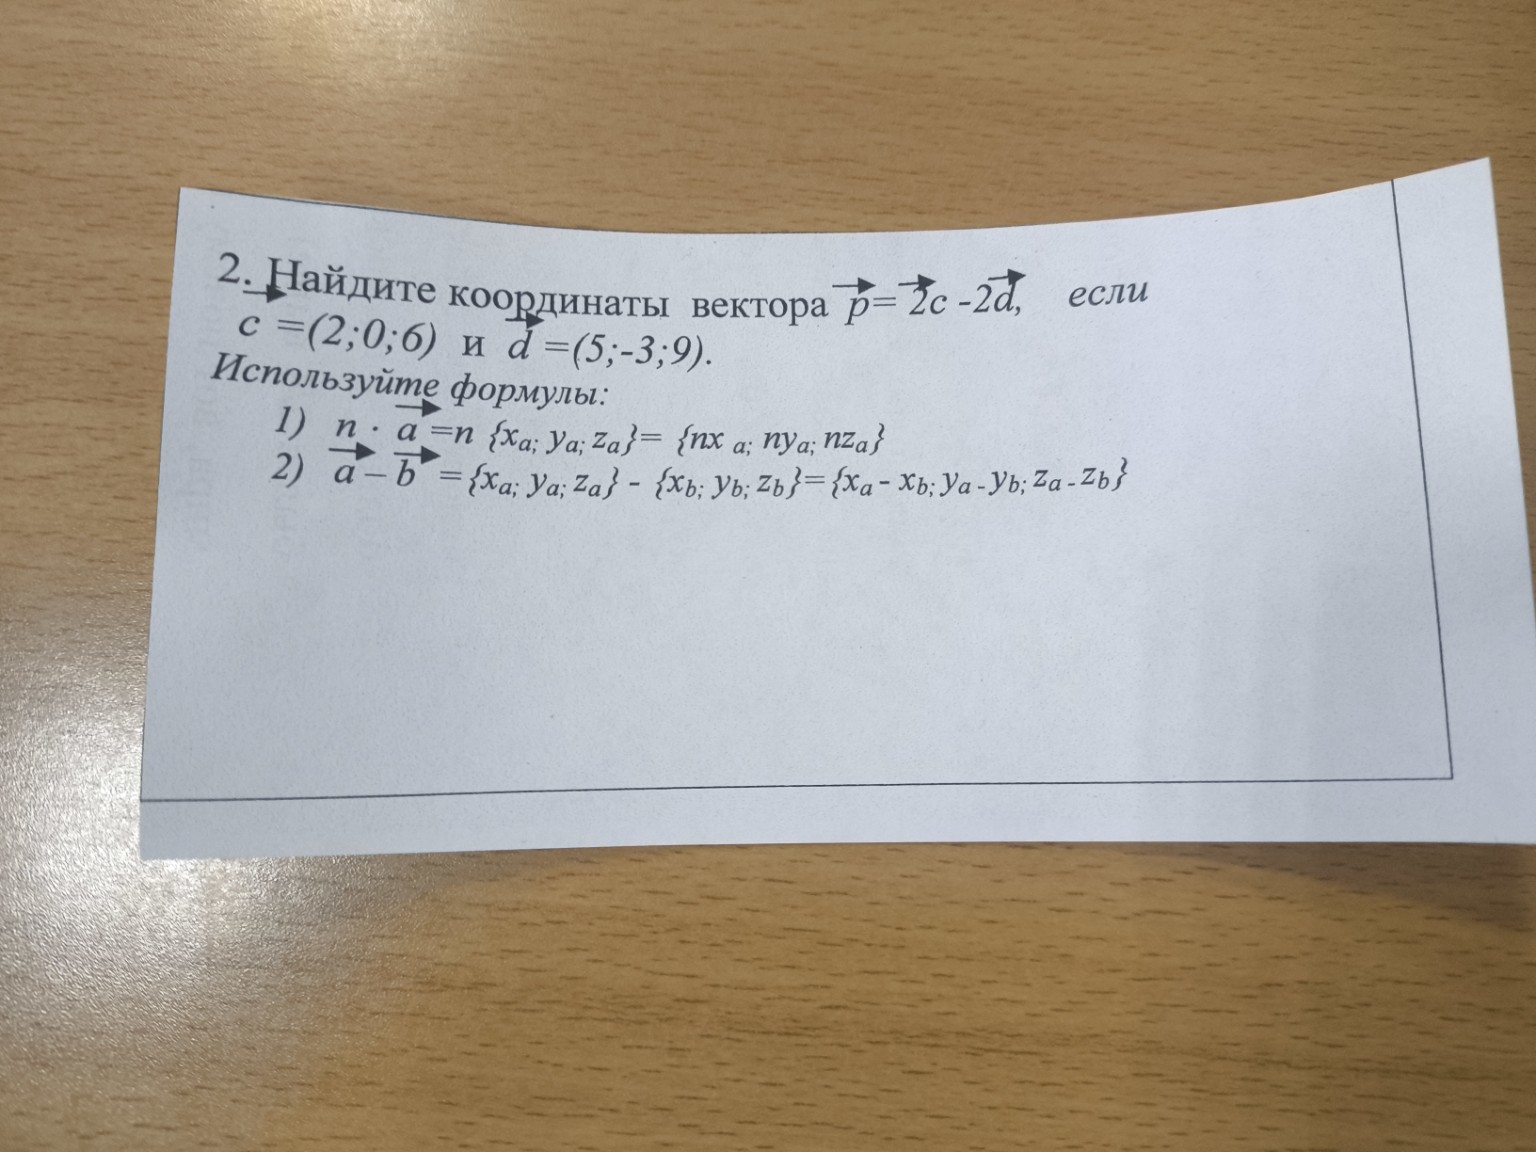 2. Найдите координаты вектора p= 2c -2d, если
c =(2;0;6) и d =(5;-3;9).
Используйте формулы:
1) n · a =n {xa; ya; za}= {nx a; nya; nza}
2) a – b ={xa; ya; za} - {xb; yb; zb}={xa - xb; ya - yb; za - zb}